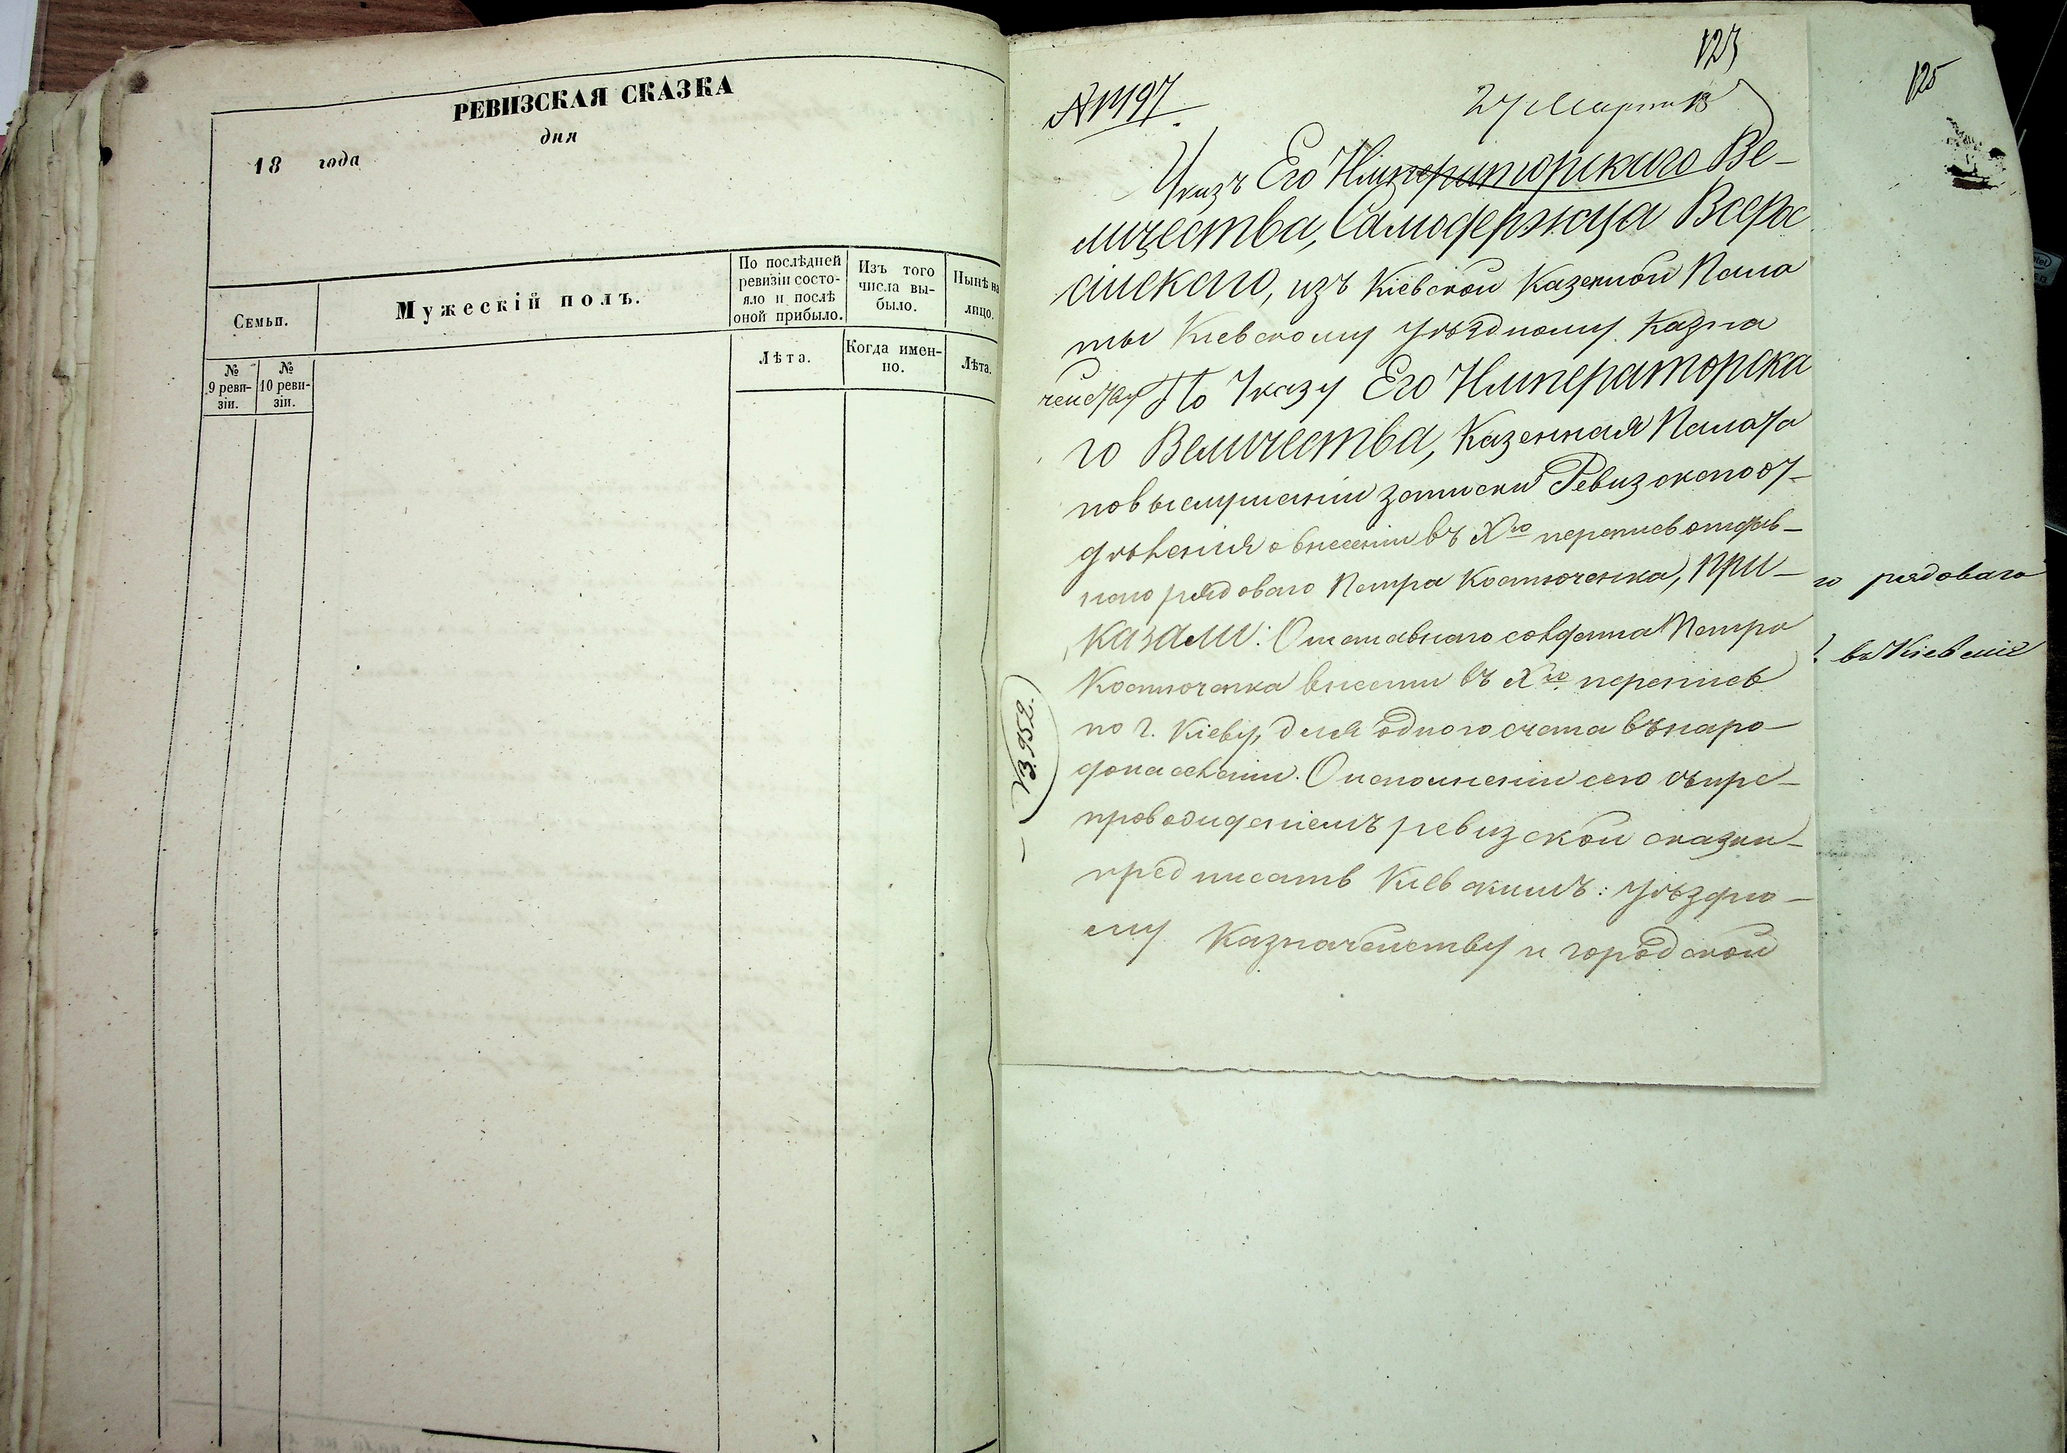 РЕВИЗСКАЯ СКАЗКА
дня
18 года
Семьи.
Мужескій полъ.
По послѣдней
ревизіи состо-
яло и послѣ
оной прибыло.
Изъ того
числа вы-
было.
Нынѣ на
лицо.
№
9 реви-
зіи.
№
10 реви-
зіи.
Лѣта.
Когда имен-
но.
Лѣта.
123
27 Марта
Указъ Его Императорскаго Ве-
личества, Самодержца Всерос
сійскаго, изъ Кіевской Казенной Пала
ты Кіевскому Уѣздному Казна
чейству По Указу Его Императорска
го Величества, Казенная Палата
по выслушаніи записки Ревизскаго от-
дѣленія о внесеніи въ Хю перепись отстав-
наго рядоваго Петра Костюченка, При-
казали: Отставнаго солдата Петра
Костюченка внести въ Хю перепись
по г. Кіеву, для одного счета въ наро-
донаселеніи. О исполненіи сего съ пре-
провожденіемъ ревизской сказки
предписать Кіевскимъ: Уѣздно-
му Казначейству и городской
V3.952.
125
го рядоваго
въ Кіевскіе